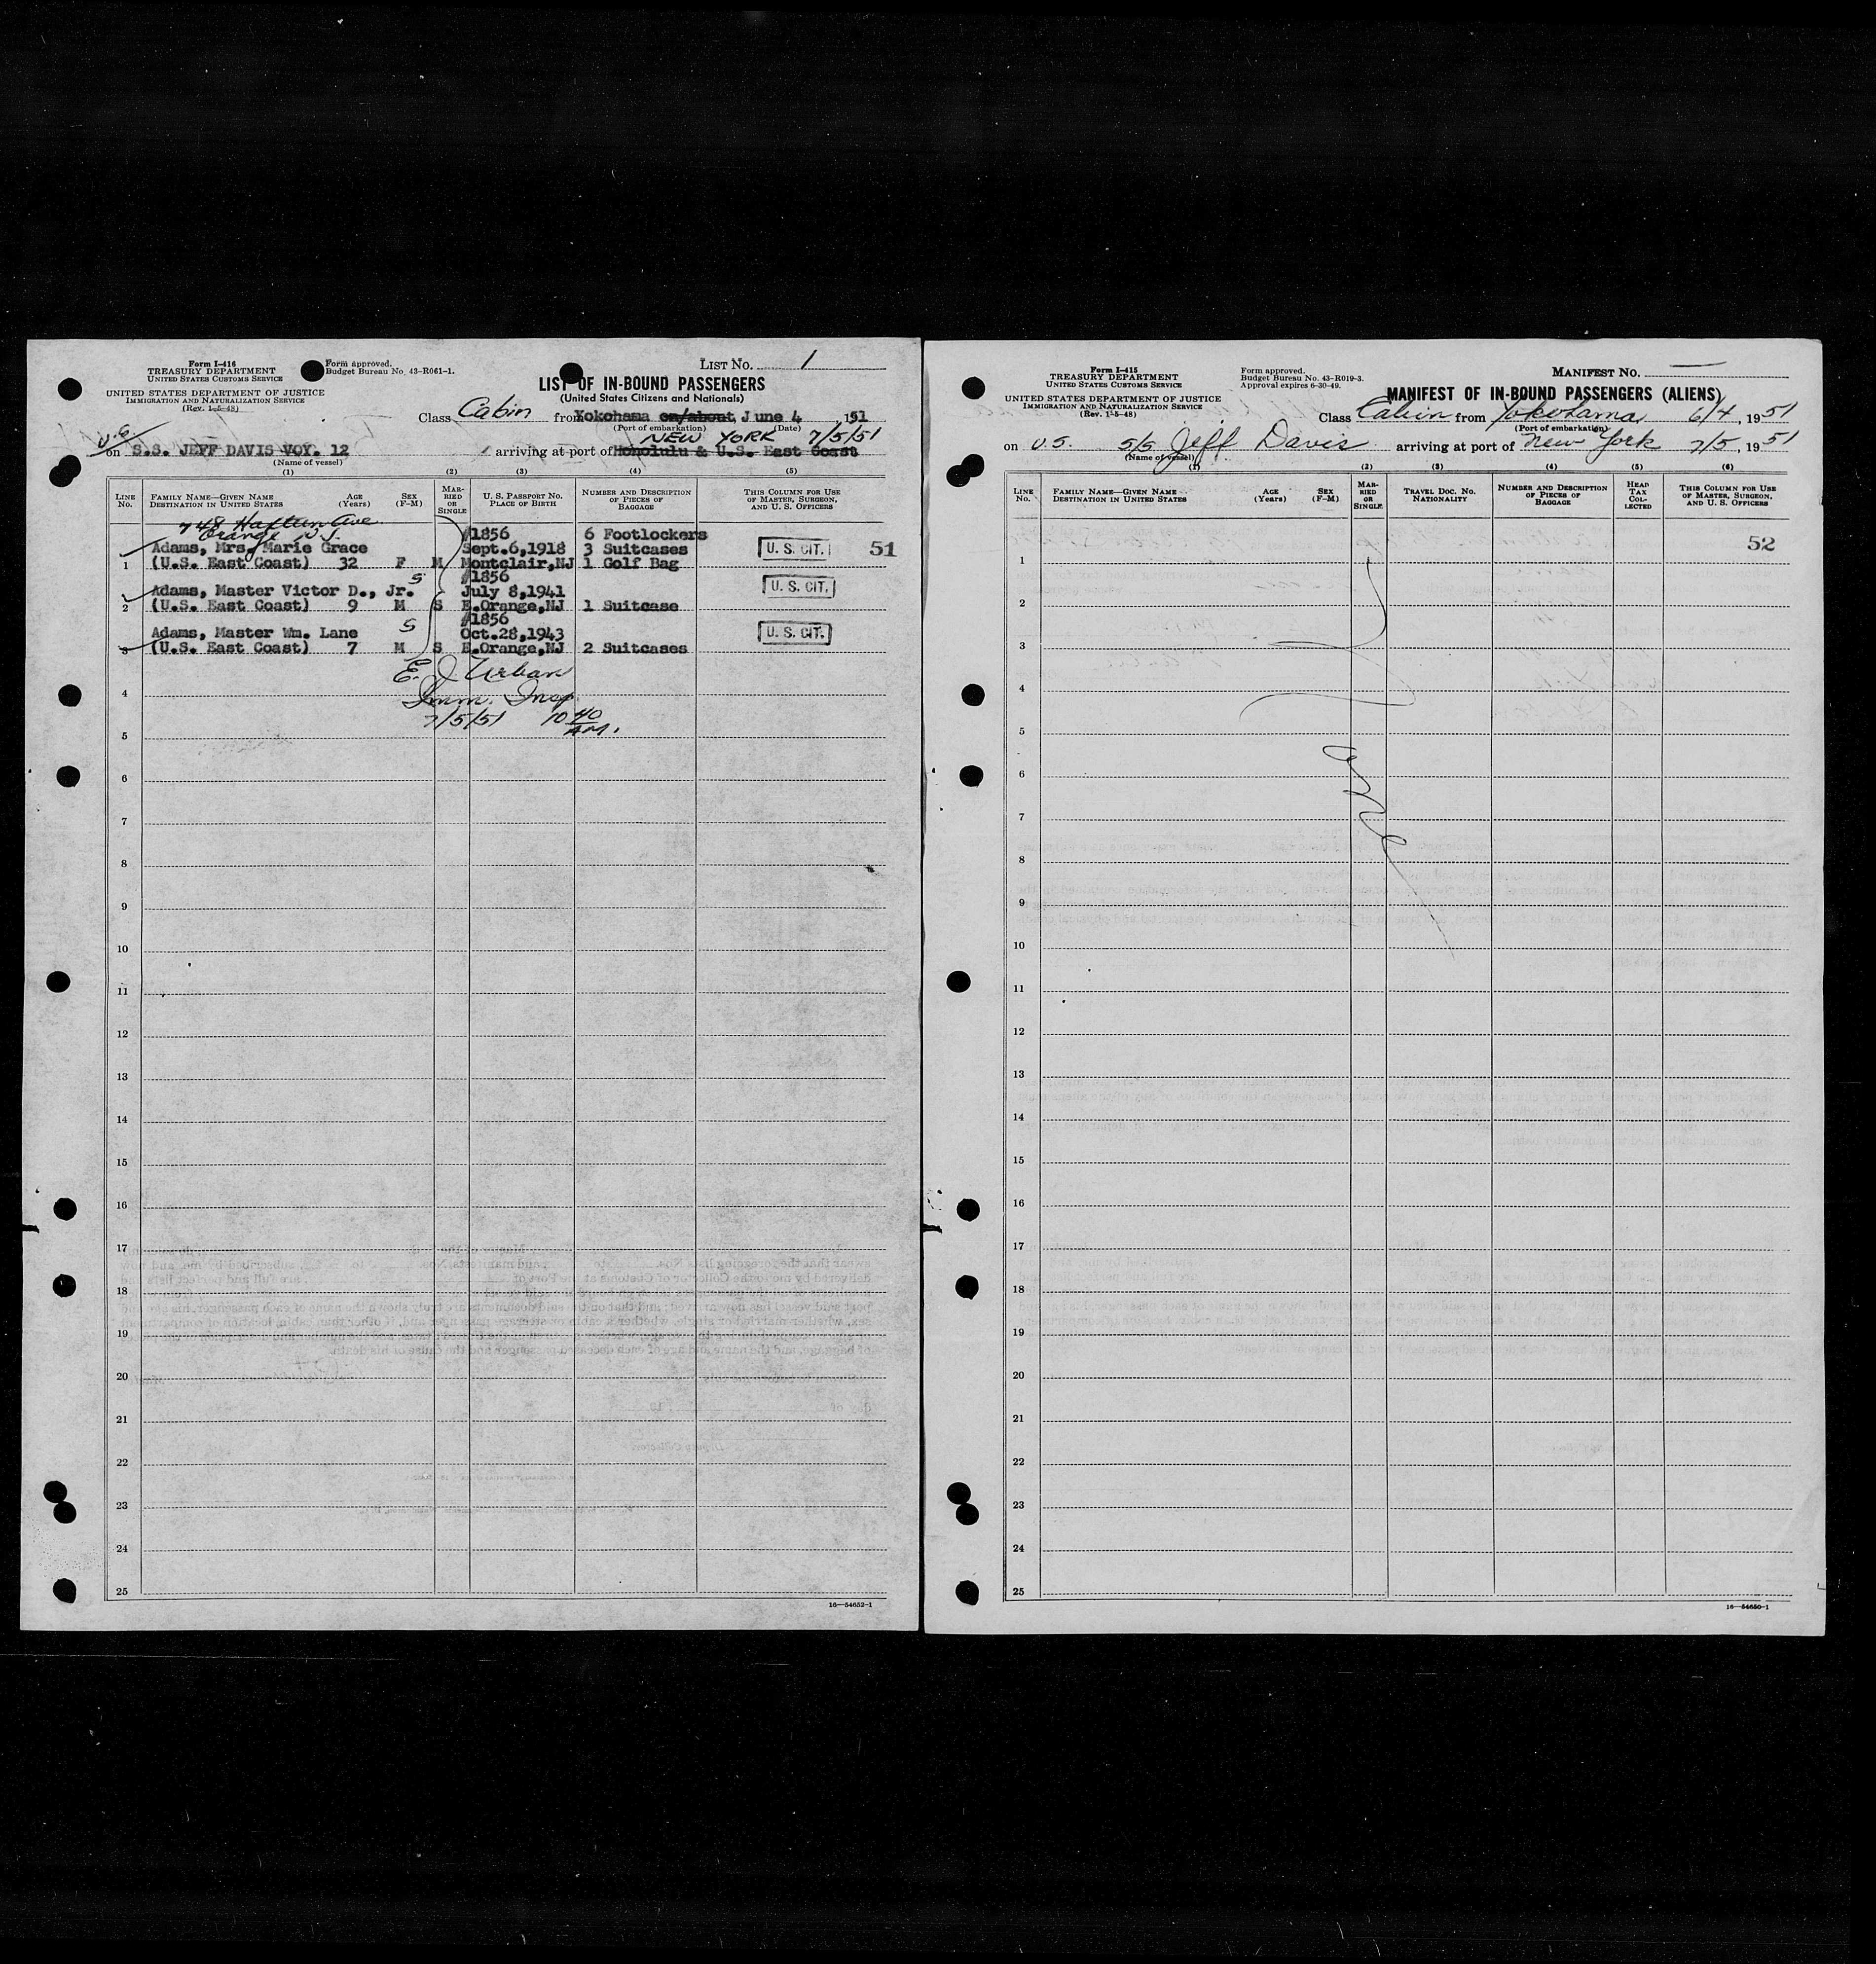 Form I-416
TREASURY DEPARTMENT
UNITED STATES CUSTOMS SERVICE
UNITED STATES DEPARTMENT OF JUSTICE
IMMIGRATION AND NATURALIZATION SERVICE
(Rev. 1-5-48)
Form approved.
Budget Bureau No. 43-R061-1.
LIST NO. 1
LIST OF IN-BOUND PASSENGERS
(United States Citizens and Nationals)
Class Cabin from Yokohama on/about, June 4, 1951
(Port of embarkation) (Date)
NEW YORK 7/5/51
U.S.
on S.S. JEFF DAVIS VOY. 12 arriving at port of Honolulu & U.S. East Coast
(Name of vessel)
(1) (2) (3) (4) (5)
LINE No. FAMILY NAME—GIVEN NAME DESTINATION IN UNITED STATES AGE (Years) SEX (F-M) MARRIED OR SINGLE U. S. PASSPORT NO. PLACE OF BIRTH NUMBER AND DESCRIPTION OF PIECES OF BAGGAGE THIS COLUMN FOR USE OF MASTER, SURGEON, AND U. S. OFFICERS
748 Ave
Orange N.J. #1856 6 Footlockers
Adams, Mrs. Marie Grace Sept.6,1918 3 Suitcases U. S. CIT. 51
1 (U.S. East Coast) 32 F M Montclair,NJ 1 Golf Bag
S #1856
Adams, Master Victor D., Jr. July 8,1941 U. S. CIT.
2 (U.S. East Coast) 9 M S E.Orange,NJ 1 Suitcase
S #1856
Adams, Master Wm. Lane Oct.28,1943 U. S. CIT.
3 (U.S. East Coast) 7 M S E.Orange,NJ 2 Suitcases
E. J. Urban
4 Imm. Insp.
7/5/51 10 40 AM.
5
6
7
8
9
10
11
12
13
14
15
16
17
18
19
20
21
22
23
24
25
16—54652-1
Form I-415
TREASURY DEPARTMENT
UNITED STATES CUSTOMS SERVICE
UNITED STATES DEPARTMENT OF JUSTICE
IMMIGRATION AND NATURALIZATION SERVICE
(Rev. 1-5-48)
Form approved.
Budget Bureau No. 43-R019-3.
Approval expires 6-30-49.
MANIFEST NO.
MANIFEST OF IN-BOUND PASSENGERS (ALIENS)
Class Cabin from Yokohama 6/4, 1951
(Port of embarkation)
on U.S. S/S Jeff Davis arriving at port of New York 7/5, 1951
(Name of vessel)
(1) (2) (3) (4) (5) (6)
LINE No. FAMILY NAME—GIVEN NAME DESTINATION IN UNITED STATES AGE (Years) SEX (F-M) MARRIED OR SINGLE TRAVEL DOC. NO. NATIONALITY NUMBER AND DESCRIPTION OF PIECES OF BAGGAGE HEAD TAX COLLECTED THIS COLUMN FOR USE OF MASTER, SURGEON, AND U. S. OFFICERS
52
1
2
3
4
5
6
7
8
9
10
11
12
13
14
15
16
17
18
19
20
21
22
23
24
25
16—54650-1